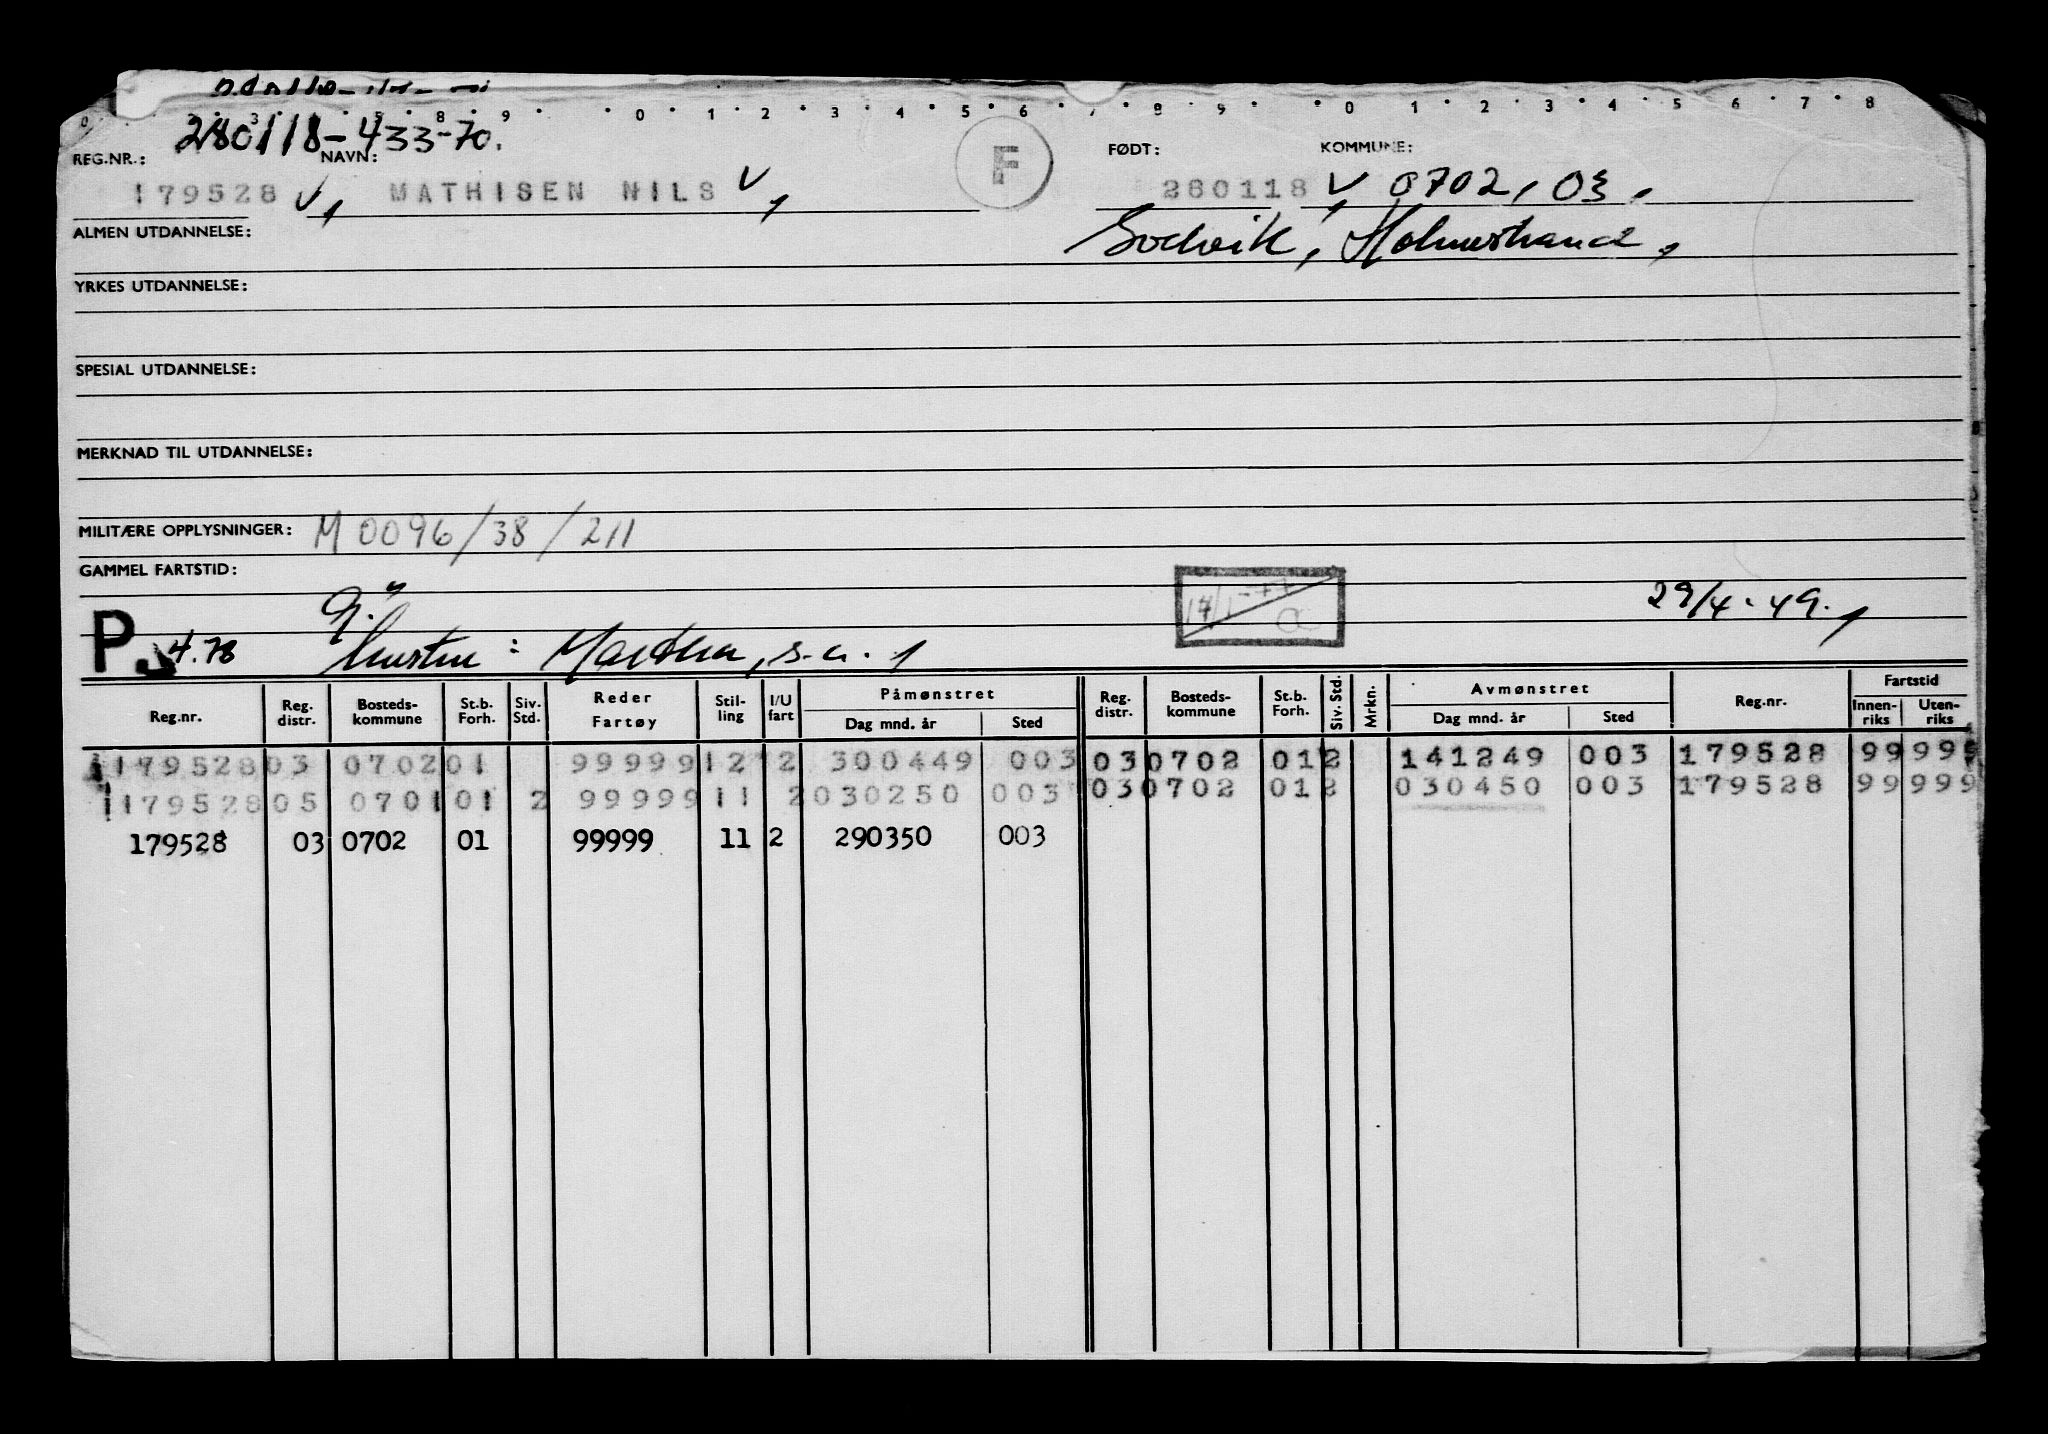 0 3 5 8 9 0 1 2 3 4 5 6 7 8 9 0 1 2 3 4 5 6 7 8
280118-433-70.
REG.NR.: NAVN: F FØDT: KOMMUNE:
179528 V, MATHISEN NILS V, 280118 V, 0702, 03,
ALMEN UTDANNELSE: Holmestrand,
YRKES UTDANNELSE:
SPESIAL UTDANNELSE:
MERKNAD TIL UTDANNELSE:
MILITÆRE OPPLYSNINGER: M 0096/38/211
GAMMEL FARTSTID:
29/4-49.
P. 4.78 hustru: Martha, s.a.
Reg.nr. Reg. distr. Bosteds- kommune St.b. Forh. Siv. Std. Reder Fartøy Stil- ling I/U fart Påmønstret Dag mnd. år Sted Reg. distr. Bosteds- kommune St.b. Forh. Siv. Std. Mrkn. Avmønstret Dag mnd. år Sted Reg.nr. Fartstid Innen- riks Uten- riks
179528 03 0702 01 99999 12 2 300449 003 03 0702 01 2 141249 003 179528 99 999
179528 05 0701 01 2 99999 11 2 030250 003 03 0702 01 2 030450 003 179528 99 999
179528 03 0702 01 99999 11 2 290350 003